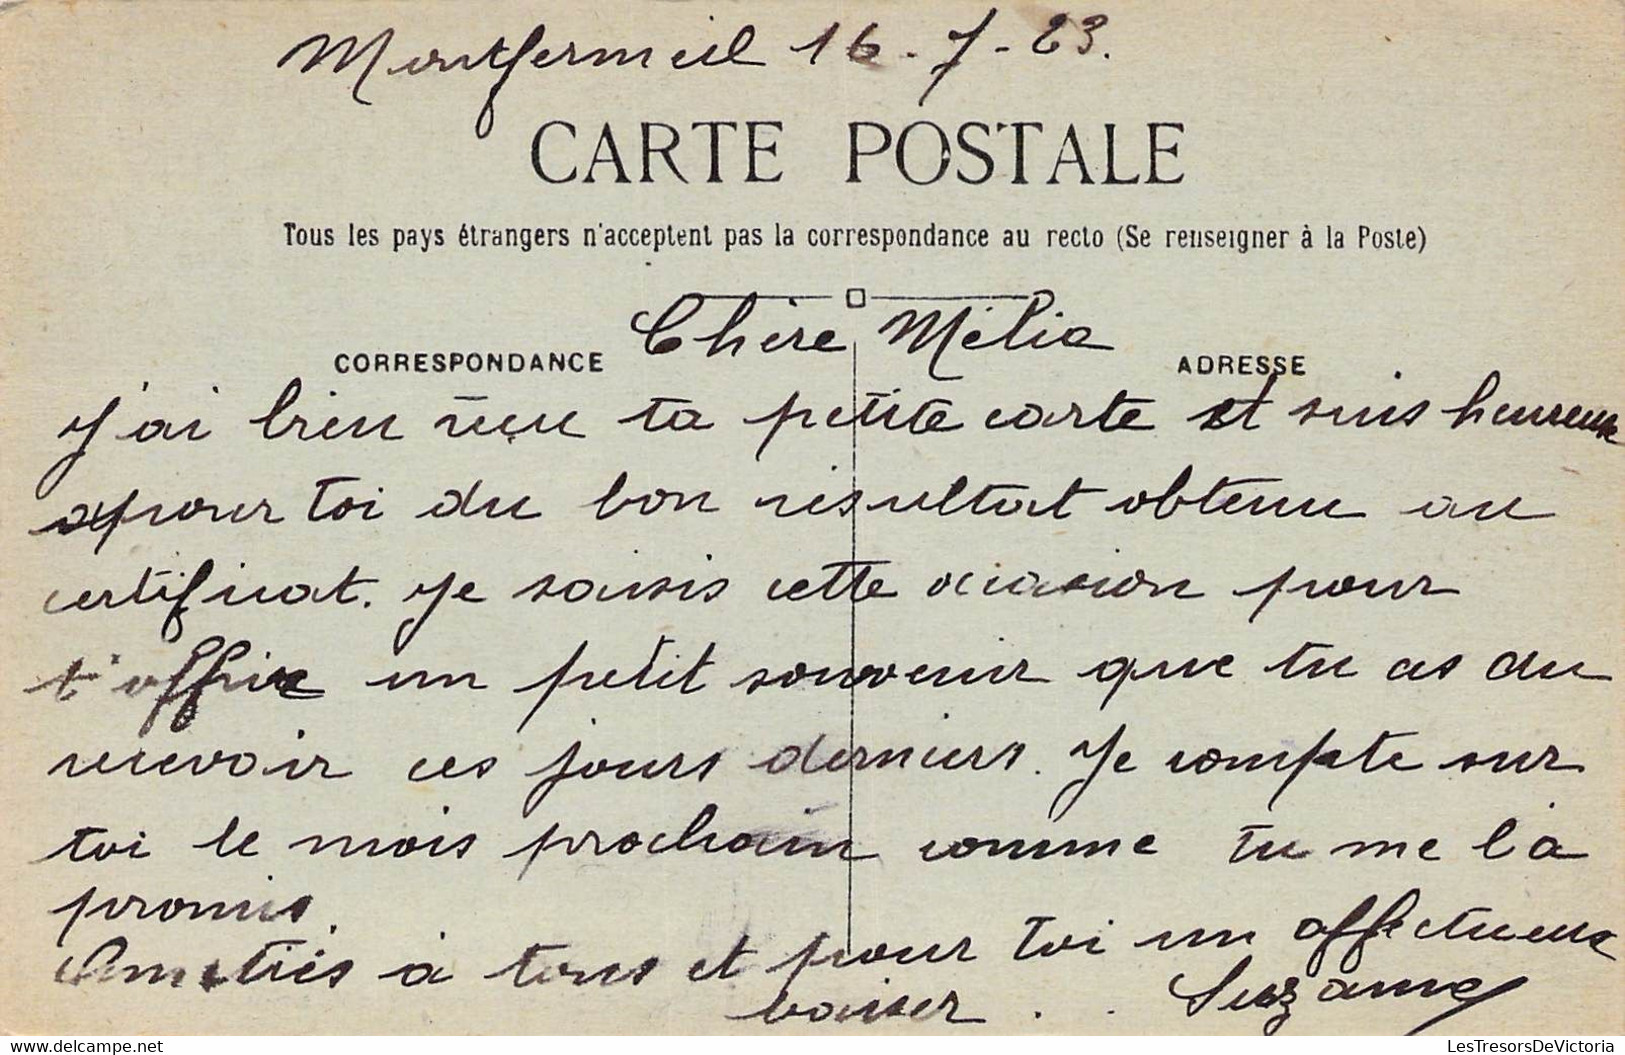 Montfermeil 16-7-23.
CARTE POSTALE
Tous les pays étrangers n'acceptent pas la correspondance au recto (Se renseigner à la Poste)
Chère Mélia
CORRESPONDANCE
ADRESSE
J'ai bien reçu ta petite carte et suis heureuse
pour toi du bon résultat obtenu au
certificat. Je saisis cette occasion pour
t'offrir un petit souvenir que tu as du
recevoir ces jours derniers. Je compte sur
toi le mois prochain comme tu me l'a
promis.
Amitiés à tous et pour toi un affectueux
baiser . . Suzanne
delcampe.net
LesTresorsDeVictoria